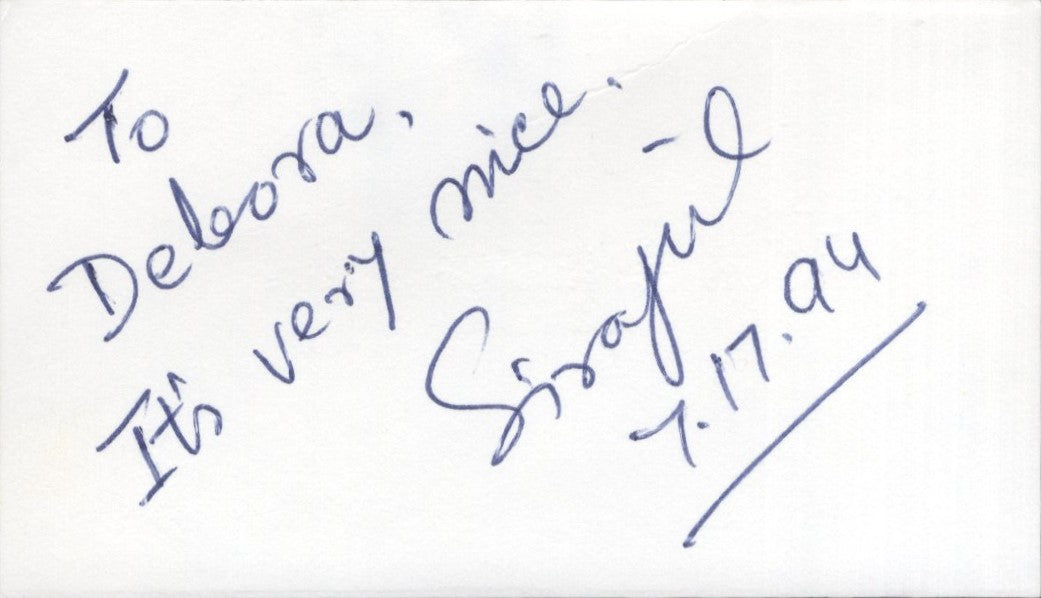 To
Debora.
It's very nice.
Sirajul
7.17.94